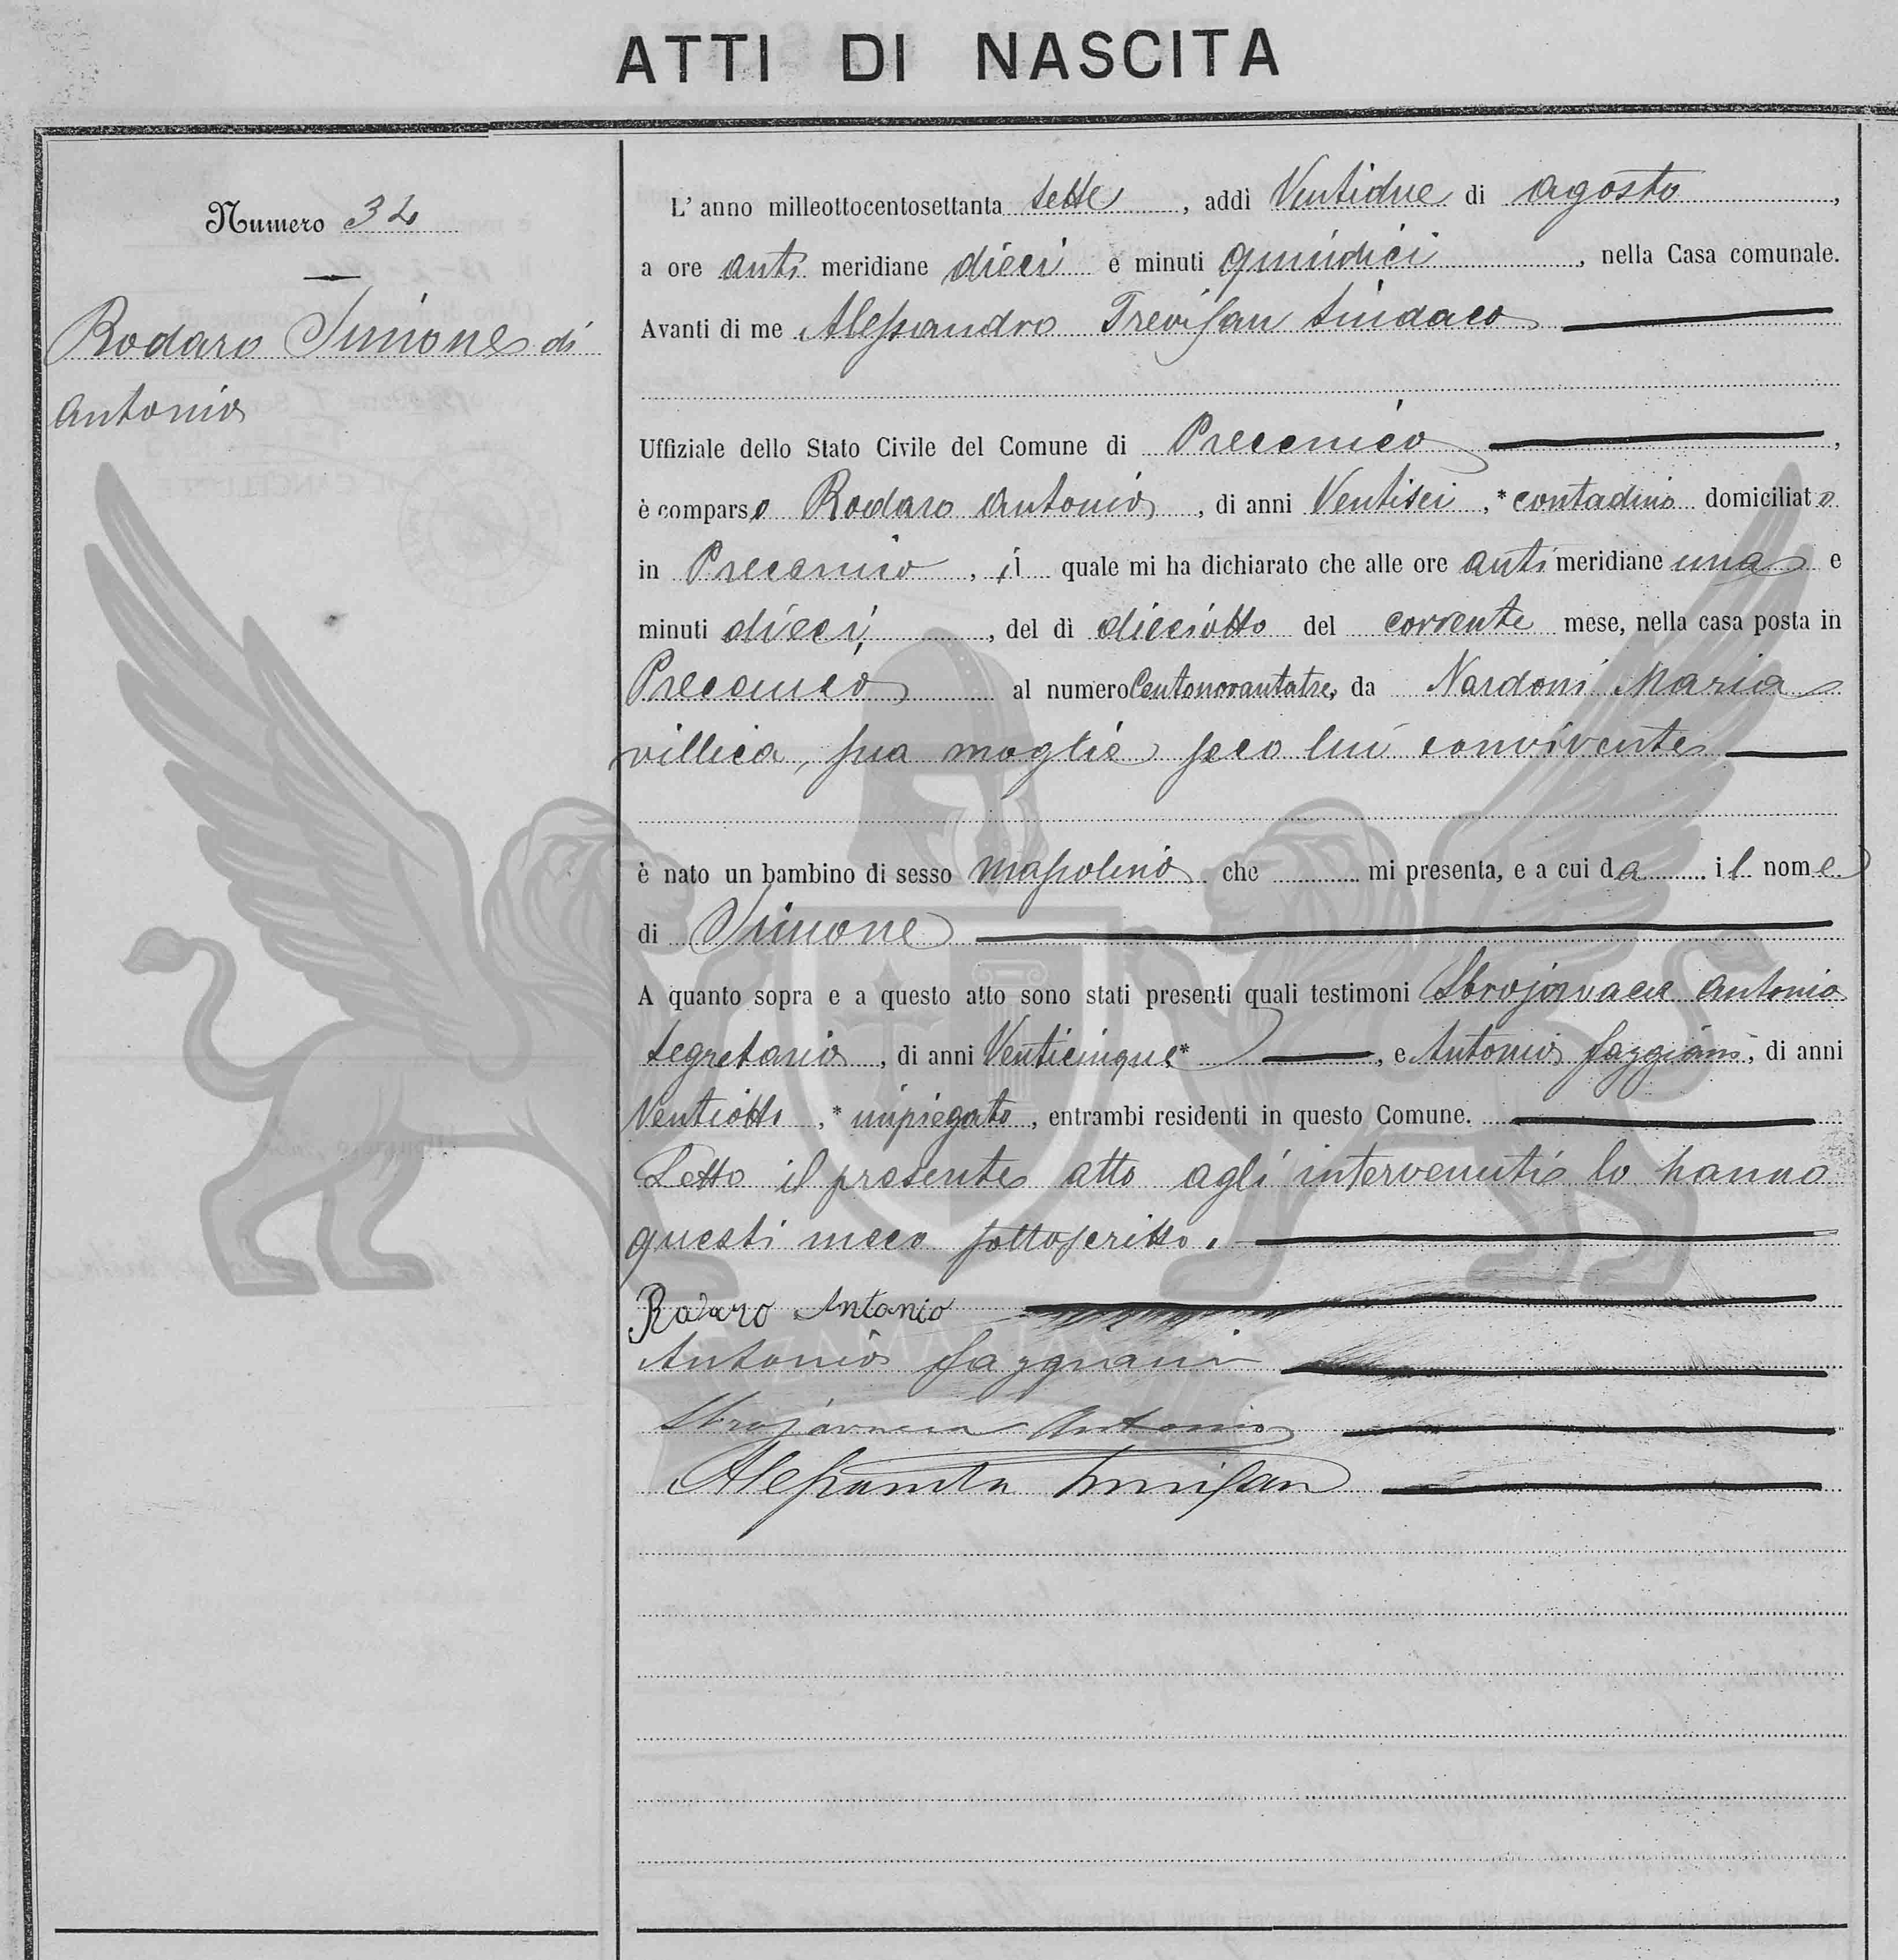 ATTI DI NASCITA
Numero 32
Rodaro Simone di
Antonio
L' anno milleottocentosettanta sette, addì Ventidue di agosto,
a ore anti meridiane dieci e minuti quindici, nella Casa comunale.
Avanti di me Alessandro Trevisan Sindaco
Uffiziale dello Stato Civile del Comune di Precenico,
è comparso Rodaro Antonio, di anni Ventisei, * contadino domiciliato
in Precenico, il quale mi ha dichiarato che alle ore anti meridiane una e
minuti dieci, del dì dieciotto del corrente mese, nella casa posta in
Precenico al numero Centonovantatre, da Nardoni Maria
villica, sua moglie seco lui convivente
è nato un bambino di sesso mascolino che mi presenta, e a cui da il nome
di Simone
A quanto sopra e a questo atto sono stati presenti quali testimoni Antonio
Segretario, di anni Venticinque*, e Antonio Faggiani, di anni
Ventiotto, * impiegato, entrambi residenti in questo Comune.
Letto il presente atto agli intervenuti lo hanno
questi meco sottoscritto.
Rodaro Antonio
Antonio Faggiani
Antonio
Alessandro Trevisan